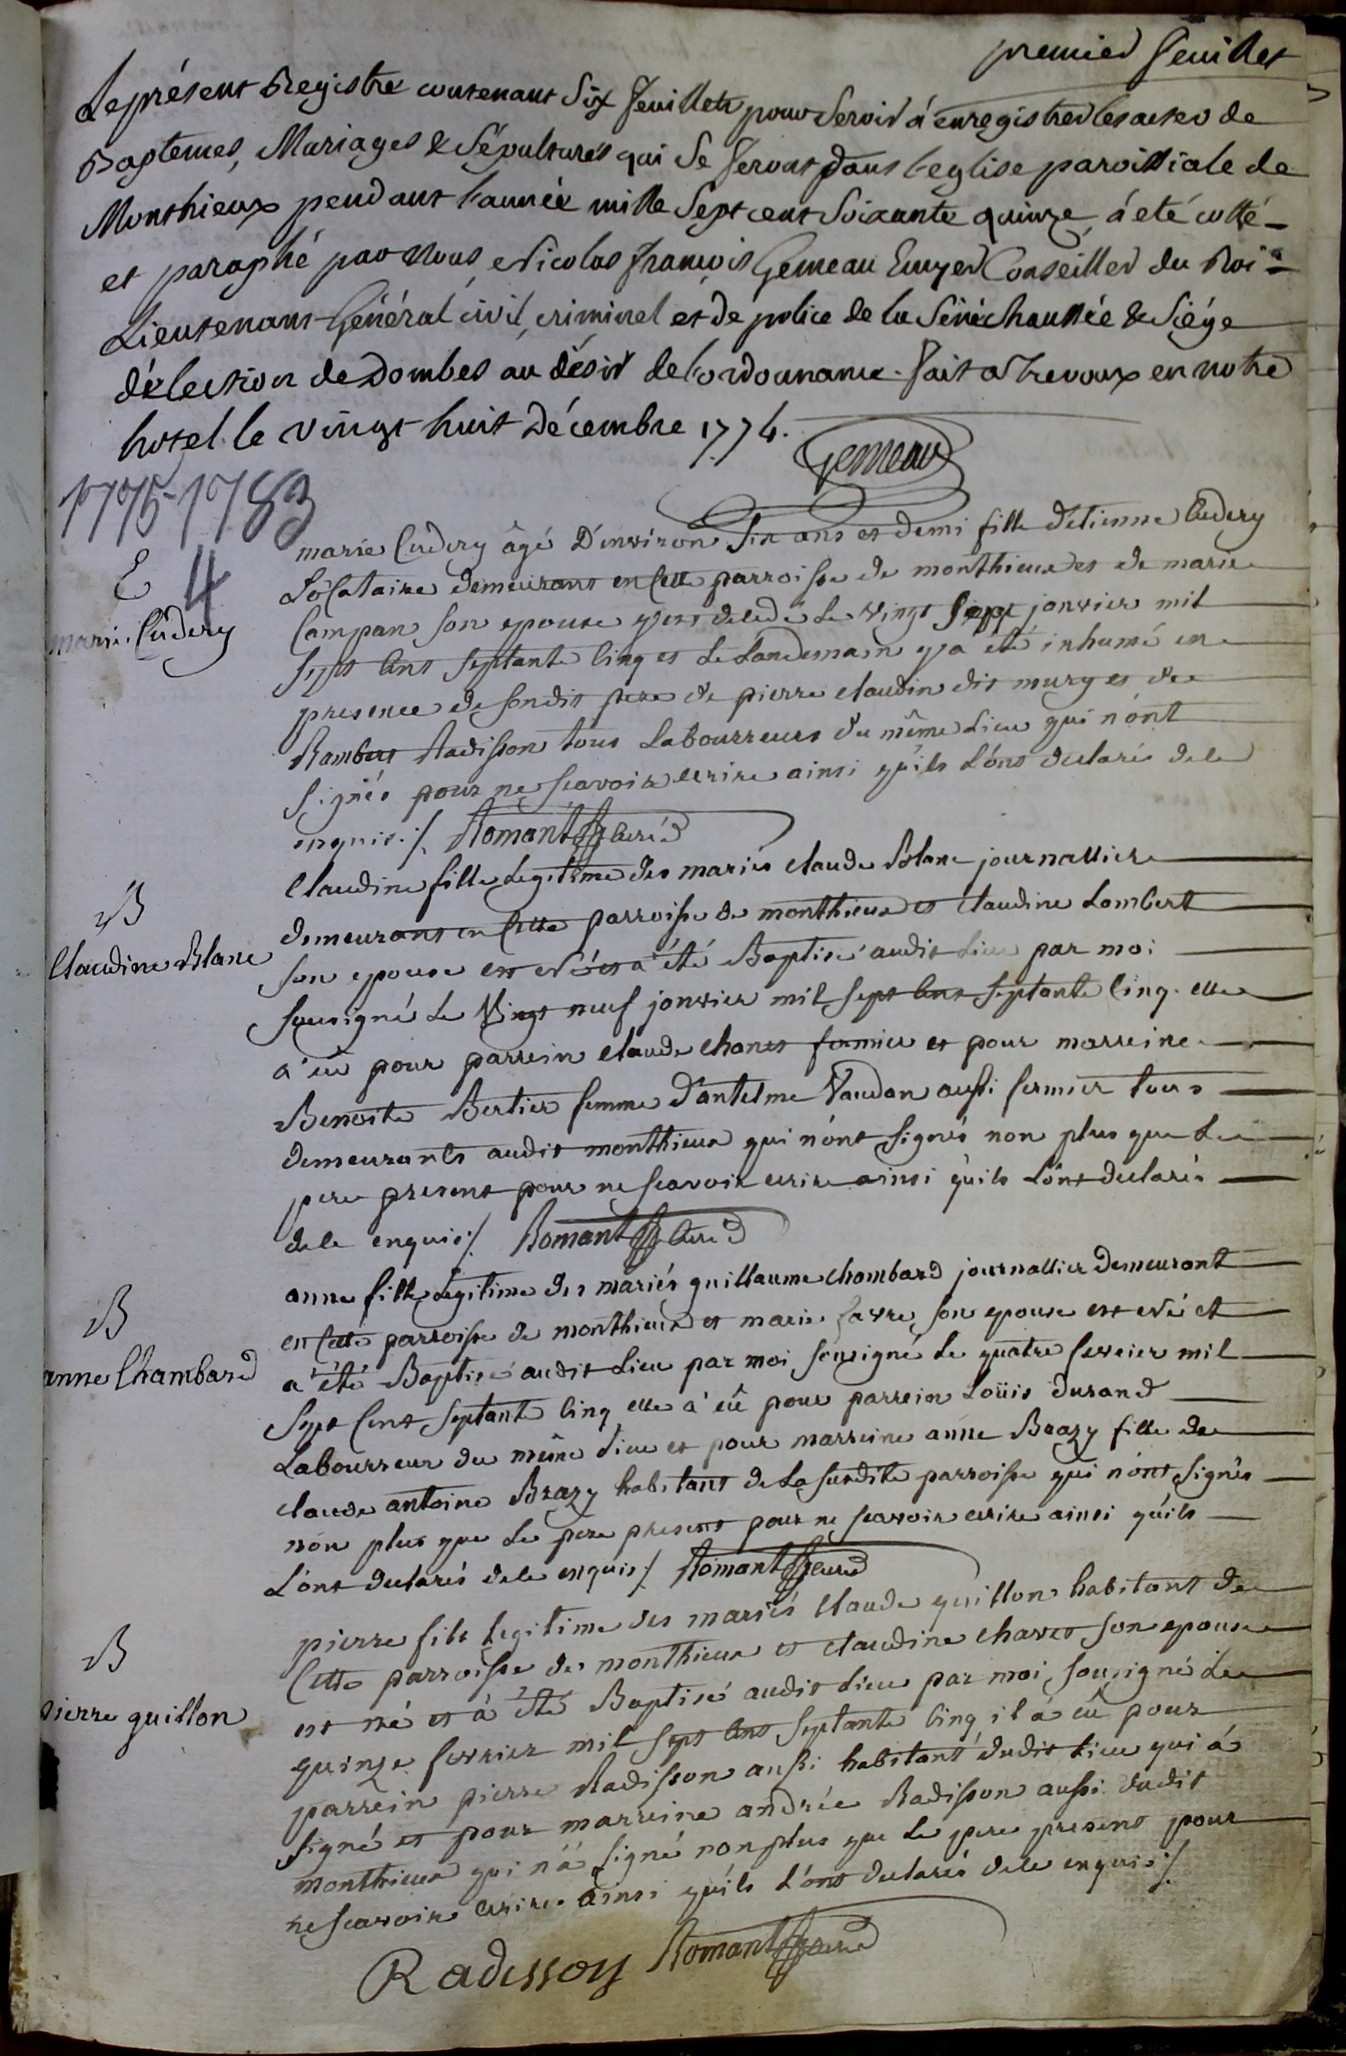 premier feuillet
Le présent Registre contenant Six feuillets pour Servir à enregistrer les actes de
Baptemes, Mariages & Sépultures qui Se feront dans l'eglise paroissiale de
Monthieux pendant l'année mille Sept cent Soixante quinze, à eté cotté
et paraphé par Nous, Nicolas françois Gemeau Ecuyer Conseiller du Roi
Lieutenant Général civil, criminel et de police de la Sénéchaussée & Siége
d'élection de Dombes au désir de l'ordonnance. fait a Trevoux en notre
hotel le vingt huit Décembre 1774.
Gemeau
1775-1783
E 4
marie Cudery
marie Cudery âgé D'environ Six ans et demi fille d'Etienne Cudery
Locataire demeurant en Cette parroisse de monthieux et de marie
Campan son epouse y est decedé Le vingt Sept janvier mil
sept Cens septante Cinq et Le Landemain y a été inhumé en
presence de sondit pere de pierre claudin dit murg et de
Rambert Radisson tous Labourreurs du même Lieu qui n'ont
signés pour ne scavoir ecrire ainsi qu'ils L'ont declarés de ce
enquis ./. Romant Curé
B
Claudine Blanc
Claudine fille Legitime des mariés claude Blanc journallier
demeurant en Cette parroisse de monthieux et Claudine Lambert
son epouse est née et a été Baptisé audit Lieu par moi
sousigné Le Vingt neuf janvier mil sept Cens septante Cinq. elle
a eu pour parrein claude chanet fermier et pour marreine
Benoite Bertier femme d'antelme Vaudan aussi fermier tous
demeurants audit monthieux qui n'ont signés non plus que Le
pere present pour ne scavoir ecrire ainsi qu'ils L'ont declarés
de ce enquis ./. Romant Curé
B
anne Chambard
anne fille Legitime des mariés guillaume chambard journallier demeurant
en Cette parroisse de monthieux et marie favre son epouse est née et
a été Baptisé audit Lieu par moi sousigné Le quatre fevrier mil
Sept Cent Septante Cinq elle a eû pour parrein Loüis durand
Labourreur du même Lieu et pour marreine anne Brazy fille de
claude antoine Brazy habitant de La susdite parroisse qui n'ont signés
non plus que Le pere present pour ne scavoir ecrire ainsi qu'ils
L'ont declarés de ce enquis ./. Romant Curé
B
pierre guillon
pierre fils Legitime des mariés Claude guillon habitant de
Cette parroisse de monthieux et claudine chanet son epouse
est né et à été Baptisé audit Lieu par moi sousigné Le
quinze fevrier mil sept Cens septante Cinq, il a eû pour
parrein pierre Radisson aussi habitant dudit Lieu qui à
signé et pour marreine andrée Radisson aussi dudit
monthieux qui n'a signé non plus que Le pere present pour
ne scavoir ecrire ainsi qu'ils L'ont declarés de ce enquis ./.
Radisson Romant Curé